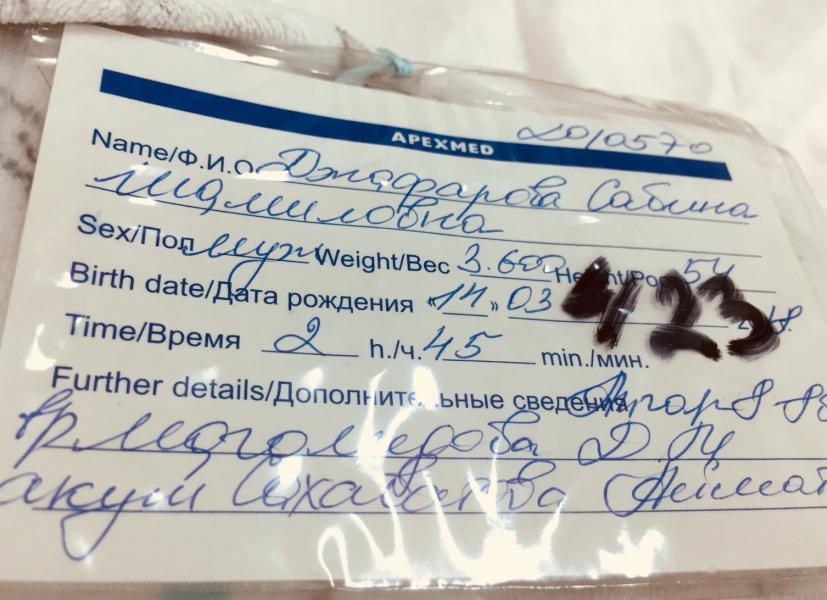 APEXMED
2010570
Name/Ф.И.О Джафарова Сабина
Шамиловна
Sex/Пол муж Weight/Вес 3.600 Height/Рост 54
Birth date/Дата рождения «14» 03 2018.
423
Time/Время 2 h./ч. 45 min./мин.
Further details/Дополнительные сведения Апгар 8-8
вр Магомедова Д.М
акуш Сахаватова